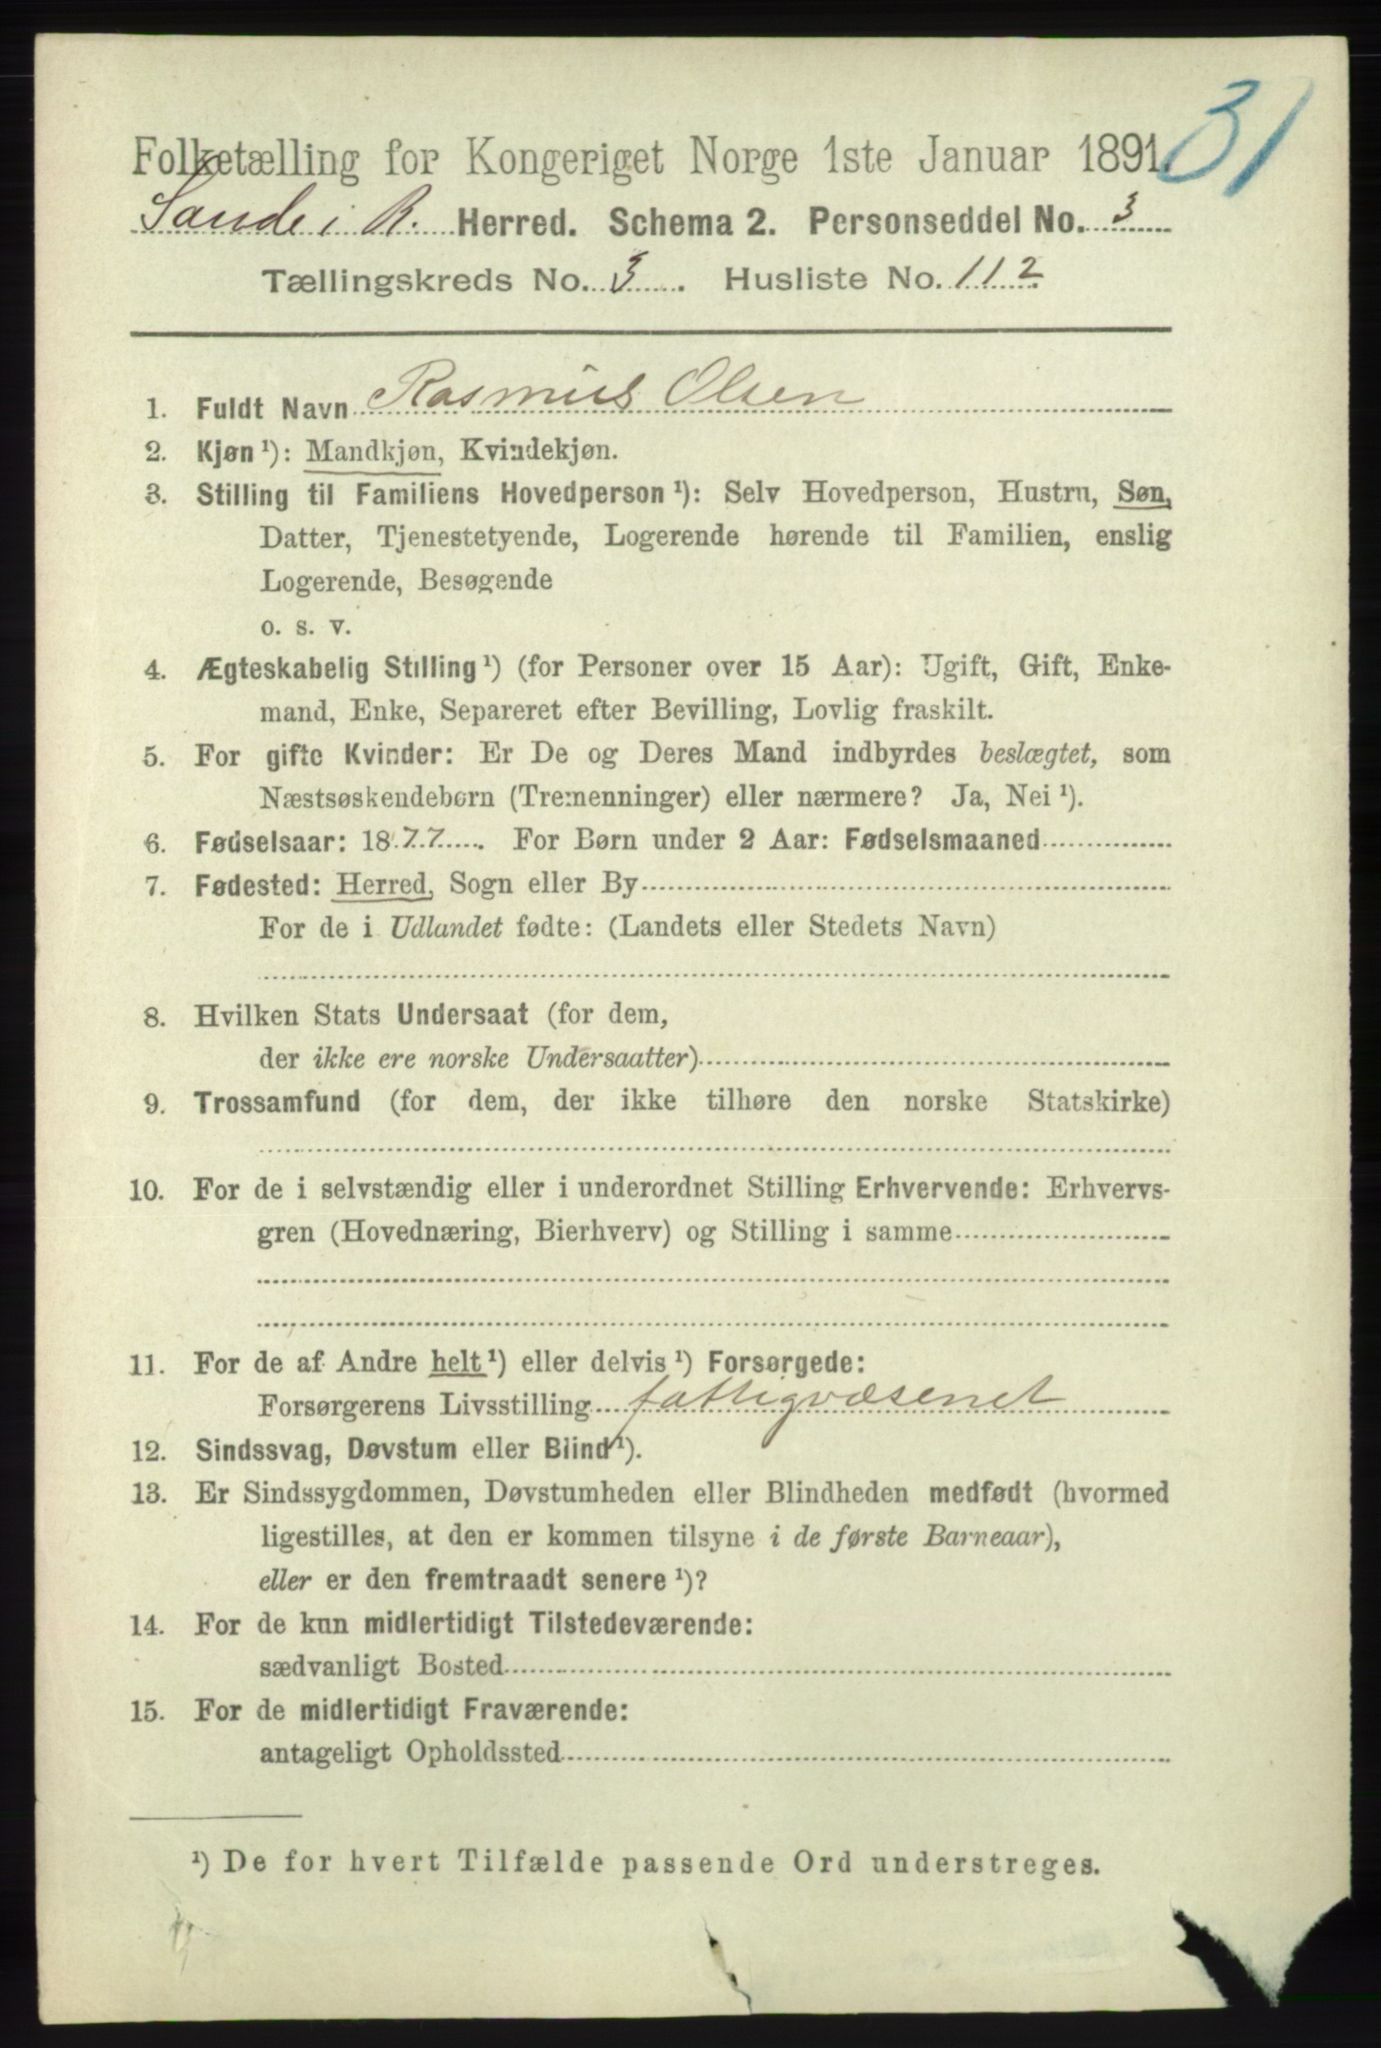 31
Folketælling for Kongeriget Norge 1ste Januar 1891.
Sande i R. Herred. Schema 2. Personseddel No. 3
Tællingskreds No. 3. Husliste No. 112
1. Fuldt Navn Rasmus Olsen
2. Kjøn ¹): Mandkjøn, Kvindekjøn.
3. Stilling til Familiens Hovedperson ¹): Selv Hovedperson, Hustru, Søn,
Datter, Tjenestetyende, Logerende hørende til Familien, enslig
Logerende, Besøgende
o. s. v.
4. Ægteskabelig Stilling ¹) (for Personer over 15 Aar): Ugift, Gift, Enke-
mand, Enke, Separeret efter Bevilling, Lovlig fraskilt.
5. For gifte Kvinder: Er De og Deres Mand indbyrdes beslægtet, som
Næstsøskendebørn (Tremenninger) eller nærmere? Ja, Nei ¹).
6. Fødselsaar: 1877. For Børn under 2 Aar: Fødselsmaaned
7. Fødested: Herred, Sogn eller By
For de i Udlandet fødte: (Landets eller Stedets Navn)
8. Hvilken Stats Undersaat (for dem,
der ikke ere norske Undersaatter)
9. Trossamfund (for dem, der ikke tilhøre den norske Statskirke)
10. For de i selvstændig eller i underordnet Stilling Erhvervende: Erhvervs-
gren (Hovednæring, Bierhverv) og Stilling i samme
11. For de af Andre helt ¹) eller delvis ¹) Forsørgede:
Forsørgerens Livsstilling fattigvæsenet
12. Sindssvag, Døvstum eller Blind ¹).
13. Er Sindssygdommen, Døvstumheden eller Blindheden medfødt (hvormed
ligestilles, at den er kommen tilsyne i de første Barneaar),
eller er den fremtraadt senere ¹)?
14. For de kun midlertidigt Tilstedeværende:
sædvanligt Bosted
15. For de midlertidigt Fraværende:
antageligt Opholdssted
¹) De for hvert Tilfælde passende Ord understreges.